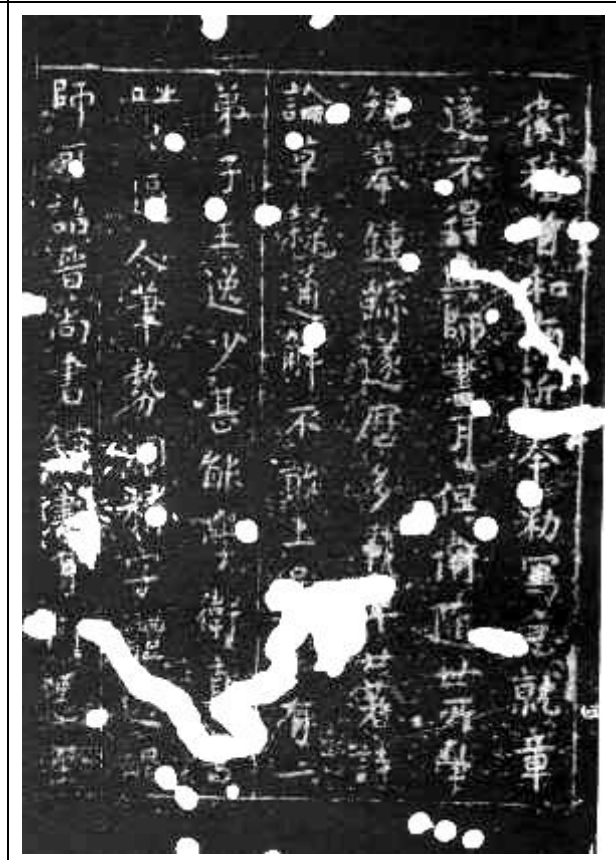 衛稽首和南近奉勑寫急就章
遂不得與師書耳但衛隨世所學
規摹鍾繇遂歷多載年廿著詩
論草隸通解不敢上有一
弟子王逸少甚能學衛真書
咄咄逼人筆勢洞精字體
師可詣晉尚書館書耳